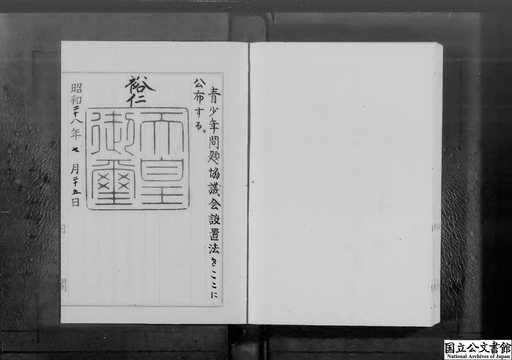 青少年問題協議会設置法をここに
公布する。
裕仁
天皇
御璽
昭和二十八年七月二十五日
国立公文書館
National Archives of Japan